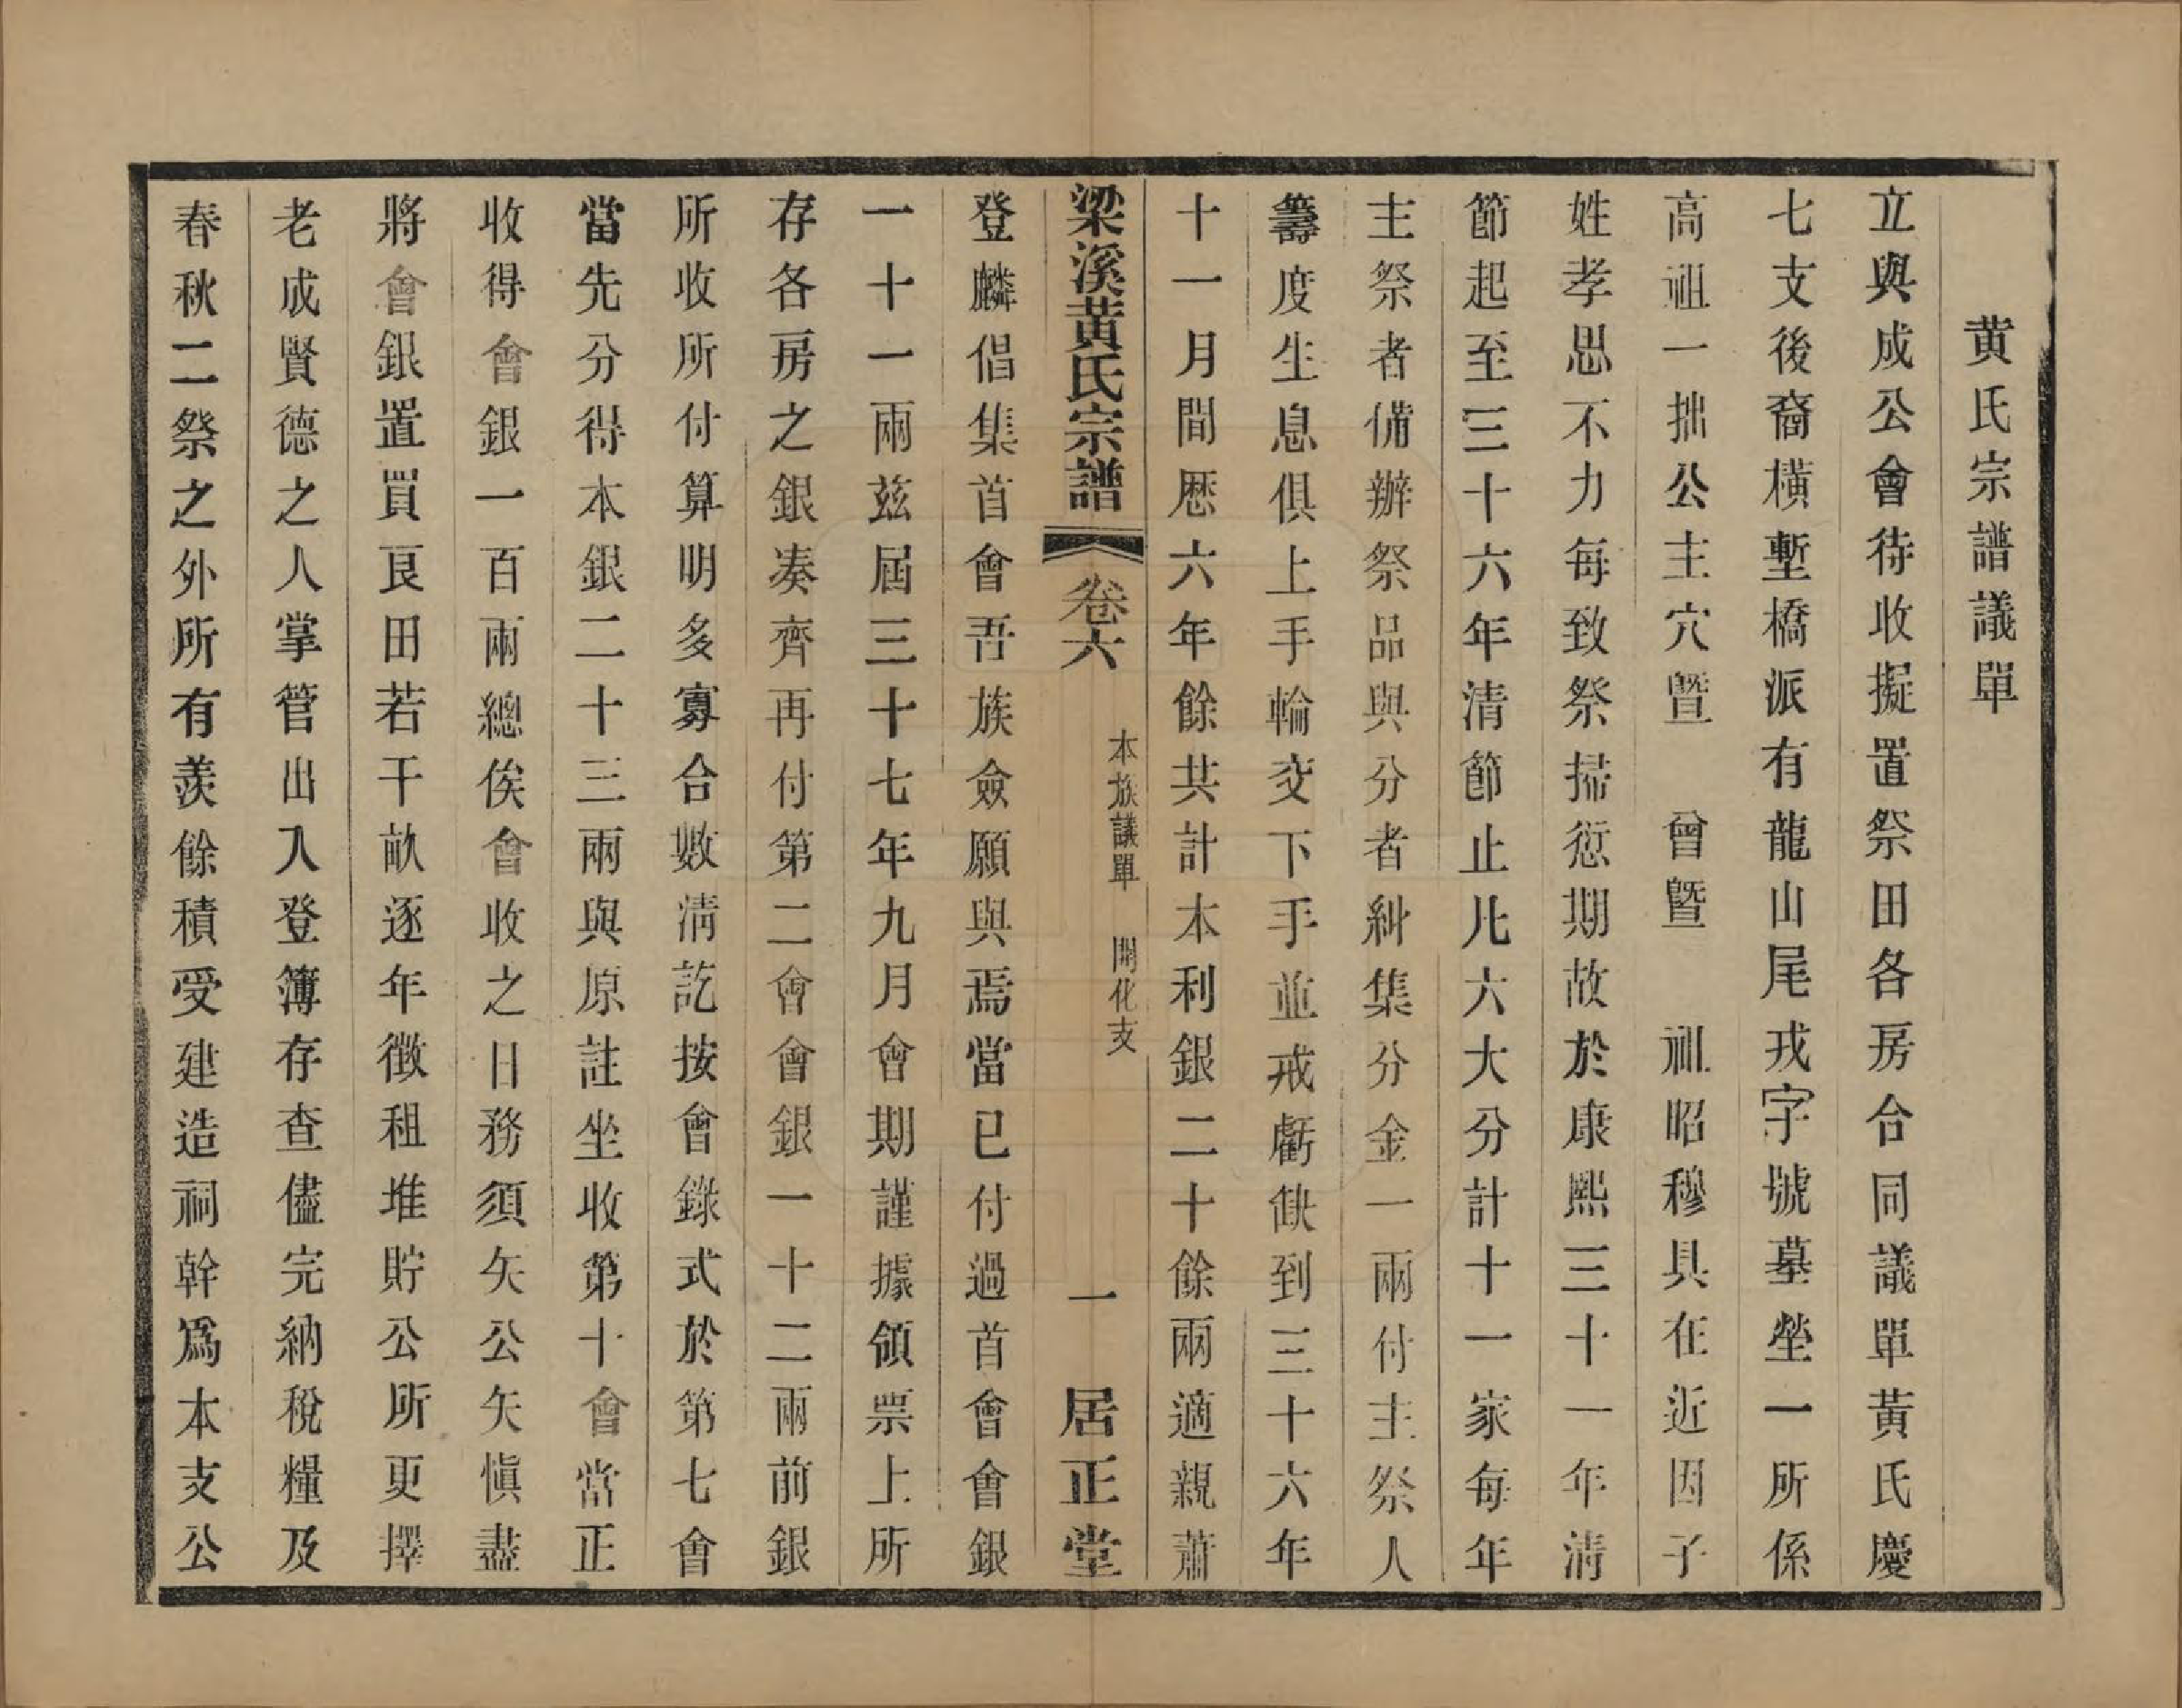 黄氏宗譜議單
立與成公會待收擬置祭田各房合同議單黃氏慶
七支後裔橫塹橋派有龍山尾戎字號墓塋一所係
高祖一拙公主穴暨　曾暨　祖昭穆具在近因子
姓孝思不力每致祭掃愆期故於康熙三十一年清
節起至三十六年清節止凡六大分計十一家每年
主祭者備辦祭品與分者糾集分金一兩付主祭人
籌度生息俱上手輪交下手並戒虧缺到三十六年
十一月間歷六年餘共計本利銀二十餘兩適親蕭
梁溪黃氏宗譜　卷六　本族議單　開化支　一　居正堂
登麟倡集首會吾族僉願與焉當已付過首會會銀
一十一兩茲屆三十七年九月會期謹據領票上所
存各房之銀凑齊再付第二會會銀一十二兩前銀
所收所付算明多寡合數清訖按會錄式於第七會
當先分得本銀二十三兩與原註坐收第十會當正
收得會銀一百兩總俟會收之日務須矢公矢愼盡
將會銀置買良田若干畝逐年徵租堆貯公所更擇
老成賢德之人掌管出入登簿存查儘完納稅糧及
春秋二祭之外所有羨餘積受建造祠幹爲本支公